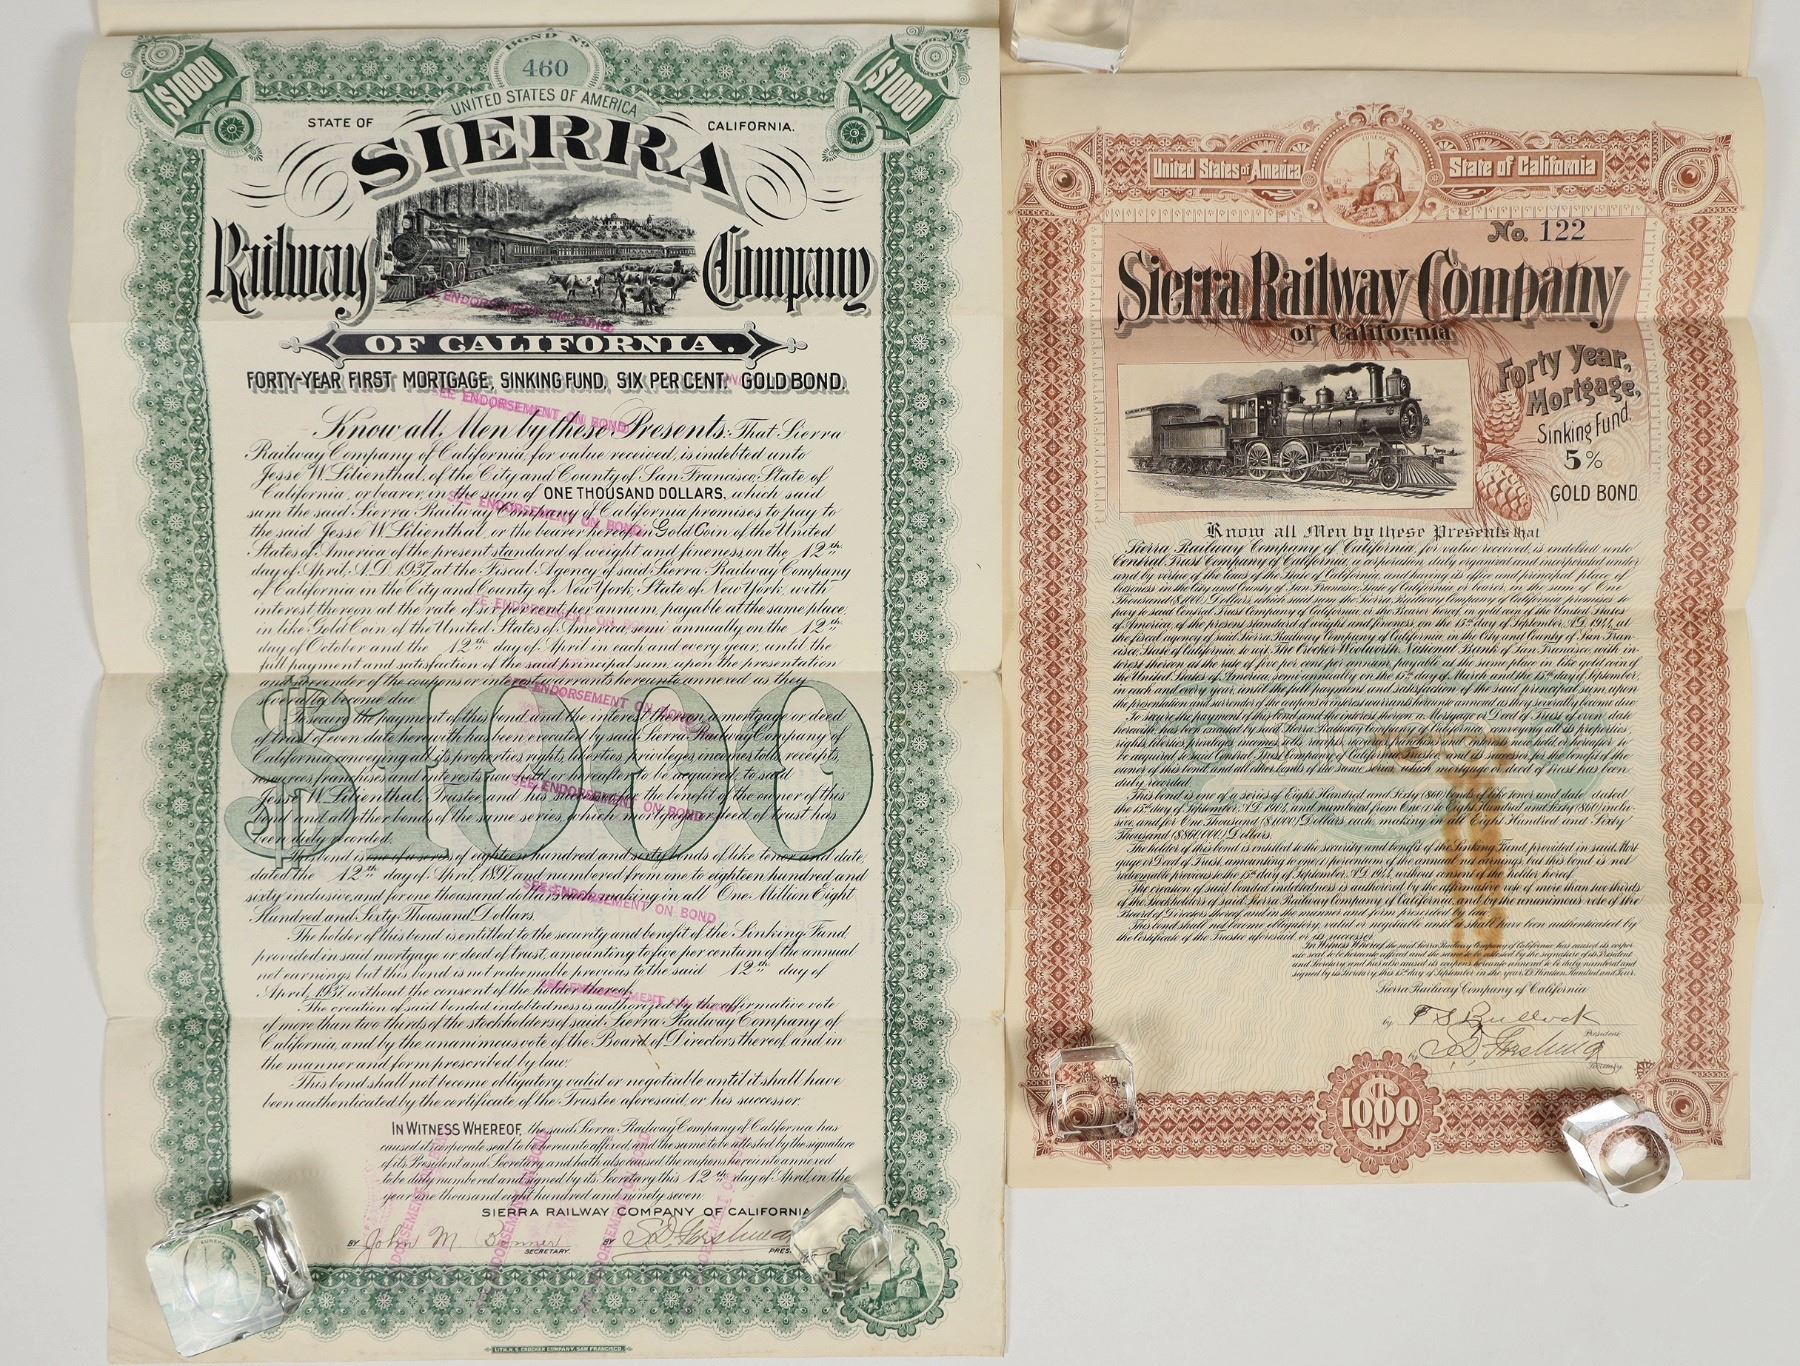 $1000
BOND No
460
$1000
UNITED STATES OF AMERICA
STATE OF
CALIFORNIA.
SIERRA
Railway
Company
OF CALIFORNIA.
FORTY-YEAR FIRST MORTGAGE, SINKING FUND, SIX PER CENT. GOLD BOND.
Know all Men by these Presents: That Sierra
Railway Company of California, for value received, is indebted unto
Jesse W. Lilienthal, of the City and County of San Francisco, State of
California, or bearer, in the sum of ONE THOUSAND DOLLARS, which said
sum the said Sierra Railway Company of California promises to pay to
the said Jesse W. Lilienthal, or the bearer hereof, in Gold Coin of the United
States of America of the present standard of weight and fineness, on the 12th
day of April, A.D. 1937, at the Fiscal Agency of said Sierra Railway Company
of California in the City and County of New York, State of New York, with
interest thereon at the rate of six per cent, per annum, payable at the same place,
in like Gold Coin of the United States of America, semi annually on the 12th
day of October and the 12th day of April in each and every year, until the
full payment and satisfaction of the said principal sum, upon the presentation
and surrender of the coupons or interest warrants hereunto annexed as they
severally become due.
To secure the payment of this bond, and the interest thereon, a mortgage or deed
of trust of even date herewith has been executed by said Sierra Railway Company of
California, conveying all its properties, rights, liberties, privileges, incomes, tolls, receipts,
resources, franchises and interests now held or hereafter to be acquired, to said
Jesse W. Lilienthal, Trustee, and his successor, for the benefit of the owner of this
bond and all other bonds of the same series, which mortgage or deed of trust has
been duly recorded.
$1000
This bond is one of a series of eighteen hundred and sixty bonds of like tenor and date,
dated the 12th day of April, 1897, and numbered from one to eighteen hundred and
sixty inclusive, and for one thousand dollars each, making in all One Million Eight
Hundred and Sixty Thousand Dollars.
The holder of this bond is entitled to the security and benefit of the Sinking Fund
provided in said mortgage or deed of trust, amounting to five per centum of the annual
net earnings but this bond is not redeemable previous to the said 12th day of
April, 1937, without the consent of the holder thereof.
The creation of said bonded indebtedness is authorized by the affirmative vote
of more than two thirds of the stockholders of said Sierra Railway Company of
California, and by the unanimous vote of the Board of Directors thereof, and in
the manner and form prescribed by law.
This bond shall not become obligatory, valid or negotiable until it shall have
been authenticated by the certificate of the Trustee aforesaid, or his successor.
IN WITNESS WHEREOF, the said Sierra Railway Company of California has
caused its corporate seal to be hereunto affixed, and the same to be attested by the signature
of its President and Secretary, and hath also caused the coupons hereinto annexed
to be duly numbered and signed by its Secretary this 12th day of April, in the
year one thousand eight hundred and ninety seven.
SIERRA RAILWAY COMPANY OF CALIFORNIA,
BY John M Bonner
SECRETARY.
BY
PRES
SEE ENDORSEMENT ON BOND
SEE ENDORSEMENT ON BOND
SEE ENDORSEMENT ON BOND
SEE ENDORSEMENT ON BOND
SEE ENDORSEMENT ON BOND
EUREKA
LITH. H. S. CROCKER COMPANY, SAN FRANCISCO
United States of America
State of California
No. 122
Sierra Railway Company
of California
Forty Year,
Mortgage,
Sinking Fund,
5%
GOLD BOND
Know all Men by these Presents that
Sierra Railway Company of California, for value received, is indebted unto
Central Trust Company of California, a corporation, duly organized and incorporated under
and by virtue of the laws of the State of California, and having its office and principal place of
business in the City and County of San Francisco, State of California, or bearer, in the sum of One
Thousand ($1,000) Dollars, which said sum the Sierra Railway Company of California promises to
pay to said Central Trust Company of California, or the Bearer hereof, in gold coin of the United States
of America, of the present standard of weight and fineness, on the 15th day of September, A.D. 1944, at
the fiscal agency of said Sierra Railway Company of California, in the City and County of San Fran-
cisco, State of California, to wit, The Crocker Woolworth National Bank of San Francisco, with in-
terest thereon at the rate of five per cent per annum, payable at the same place in like gold coin of
the United States of America, semi annually on the 15th day of March and the 15th day of September,
in each and every year, until the full payment and satisfaction of the said principal sum, upon
the presentation and surrender of the coupons or interest warrants hereunto annexed as they severally become due.
To secure the payment of this bond and the interest thereon a Mortgage or Deed of Trust of even date
herewith, has been executed by said Sierra Railway Company of California, conveying all its properties,
rights, liberties, privileges, incomes, tolls, receipts, resources, franchises and interests now held or hereafter to
be acquired to said Central Trust Company of California, Trustee, and its successor, for the benefit of the
owner of this bond, and all other bonds of the same series, which mortgage or deed of trust has been
duly recorded.
This bond is one of a series of Eight Hundred and Sixty (860) bonds of like tenor and date, dated
the 15th day of September, A.D. 1904, and numbered from One (1) to Eight Hundred and Sixty (860) inclu-
sive, and for One Thousand ($1,000) Dollars each, making in all Eight Hundred and Sixty
Thousand ($860,000) Dollars.
The holder of this bond is entitled to the security and benefit of the Sinking Fund, provided in said Mort
gage or Deed of Trust, amounting to one (1) per centum of the annual net earnings, but this bond is not
redeemable previous to the 15th day of September, A.D. 1944, without consent of the holder hereof.
The creation of said bonded indebtedness is authorized by the affirmative vote of more than two thirds
of the Stockholders of said Sierra Railway Company of California, and by the unanimous vote of the
Board of Directors thereof and in the manner and form prescribed by law.
This bond shall not become obligatory, valid or negotiable until it shall have been authenticated by
the Certificate of the Trustee aforesaid, or its successor.
In Witness Whereof, the said Sierra Railway Company of California has caused its corpor
ate seal to be hereunto affixed and the same to be attested by the signature of its President
and Secretary, and has also caused its coupons hereunto annexed to be duly numbered and
signed by its Secretary this 15th day of September in the year, A.D. Nineteen Hundred and Four.
Sierra Railway Company of California
by T S Bullock
President
by
Secretary
$1000